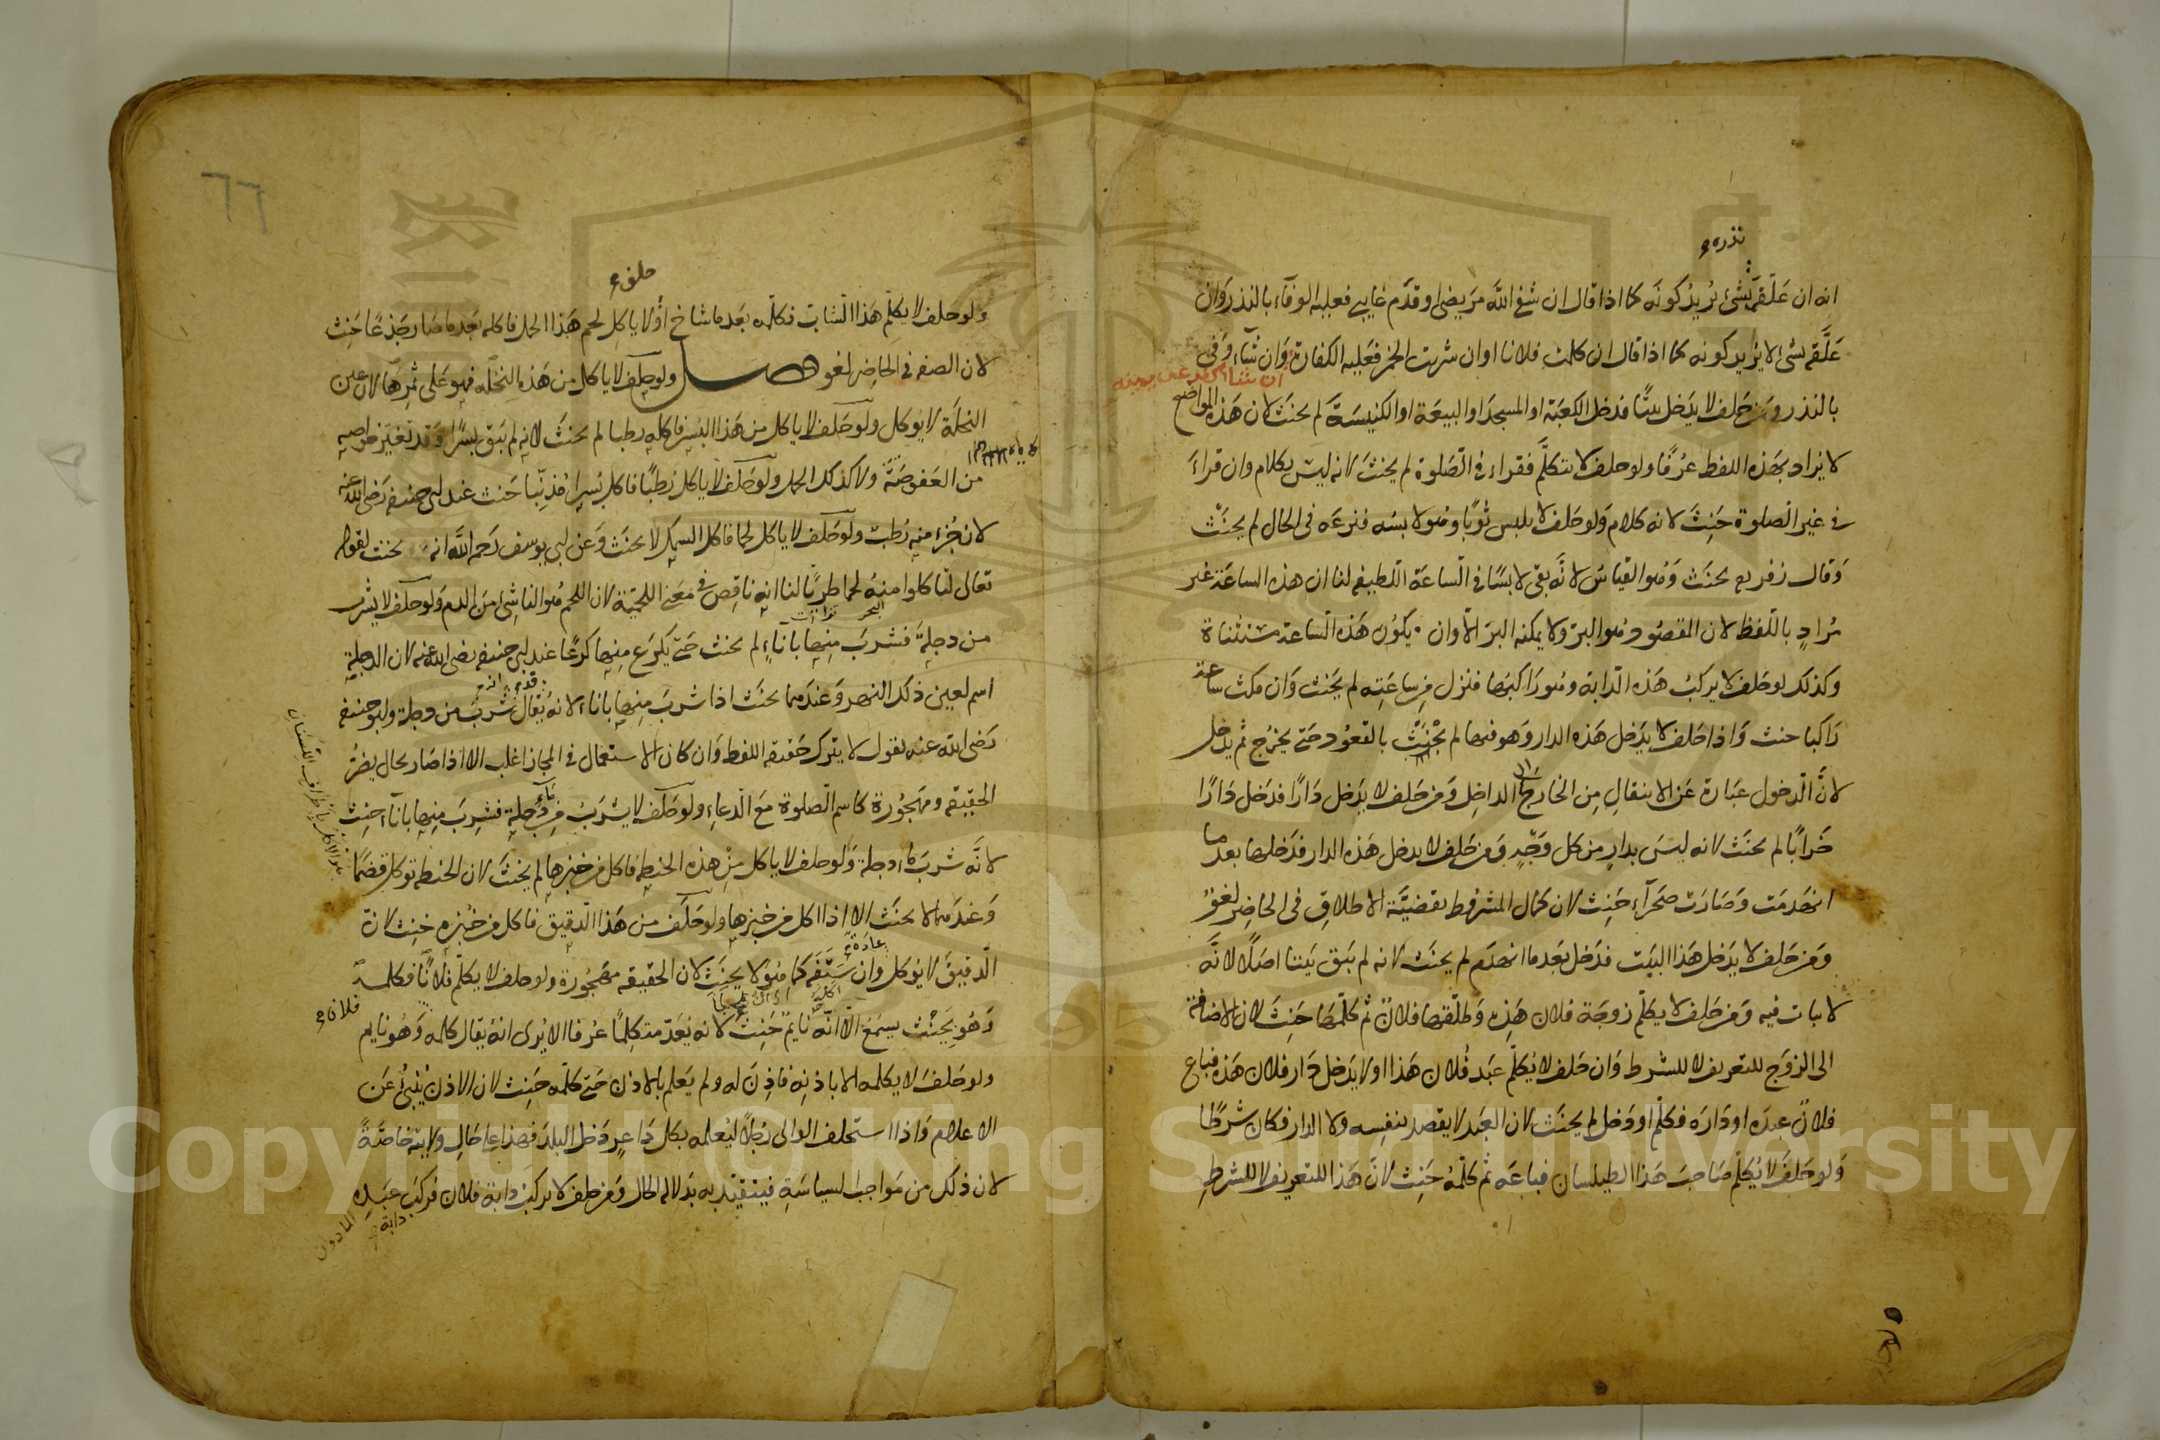 نذره
انه ان علقه بشئ يريد كونه كما اذا قال ان شفى الله مريضى او قدم غايبى فعليه الوفاء بالنذر وان
علقه بشئ لا يريد كونه كما اذا قال ان كلمت فلانا او ان شربت الخمر فعليه الكفارة وان شاء وفى
ان شاء كفر عن يمينه
بالنذر ومن حلف لا يدخل بيتا فدخل الكعبة او المسجد او البيعة او الكنيسة لم يحنث لان هذه المواضع
لا يراد بهذه اللفظ عرفا ولو حلف لا يتكلم فقراء فى الصلوة لم يحنث لانه ليس بكلام وان قراء
فى غير الصلوة حنث لانه كلام ولو حلف لا يلبس ثوبا وهو لابسه فنزعه فى الحال لم يحنث
وقال زفر يحنث وهو القياس لانه بقى لابسا فى الساعة اللطيفه لنا ان هذه الساعة غير
مراد باللفظ لان المقصود هو البر ولا يمكنه البر الا وان يكون هذه الساعة مستثناة
وكذلك لو حلف لا يركب هذه الدابة وهو راكبها فنزل من ساعته لم يحنث وان مكث ساعة
راكبا حنث واذا حلف لا يدخل هذه الدار وهو فيها لم يحنث بالقعود حتى يخرج ثم يدخل
لان الدخول عبارة عن الانتقال من الخارج الى الداخل ومن حلف لا يدخل دارا فدخل دارا
خرابا لم يحنث لانه ليس بدار من كل وجه ومن حلف لا يدخل هذه الدار فدخلها بعد ما
انهدمت وصارت صحراء حنث لان كمال المشروط بقضية الاطلاق فى الحاضر لغو
ومن حلف لا يدخل هذا البيت فدخل بعد ما انهدم لم يحنث لانه لم يبق بيتا اصلا لانه
لا بات فيه ومن حلف لا يكلم زوجة فلان هذه وطلقها فلان ثم كلمها حنث لان الاضافة
الى الزوج للتعريف لا للشرط وان حلف لا يكلم عبد فلان هذا او لا يدخل دار فلان هذه فباع
فلان عبده او داره فكلم او دخل لم يحنث لان العبد لا يقصد بنفسه ولا الدار فكان شرطا
ولو حلف لا يكلم صاحب هذا الطيلسان فباعه ثم كلمه حنث لان هذا للتعريف لا للشرط
٦٦
حلف
ولو حلف لا يكلم هذا الشاب فكلمه بعد ما شاخ او لا ياكل لحم هذا الحمل فاكله بعد ما صار جذعا حنث
لان الصفه فى الحاضر لغو فصل ولو حلف لا ياكل من هذه النخله فهو على ثمرها لان عين
النخلة لا يوكل ولو حلف لا ياكل من هذا البسر فاكله رطبا لم يحنث لانه لم يبق بسرا وقد تغير خواصه
من العفوصة ولا كذلك الحمل ولو حلف لا ياكل رطبا فاكل بسرا مذنبا حنث عند ابى حنيفه رضى الله عنه
لان جزء منه رطب ولو حلف لا ياكل لحما فاكل السمك لا يحنث وعن ابى يوسف رحمه الله انه يحنث لقوله
تعالى لتاكلوا منه لحما طريا لنا انه ناقص فى معنى اللحمية لان اللحم هو الناشئ من الدم ولو حلف لا يشرب
من دجلة فشرب منها باناء لم يحنث حتى يكرع منها كرعا عند ابى حنيفه رضى الله عنه لان الدجلة
اسم لعين ذلك النهر وعندهما يحنث اذا شرب منها باناء لانه يقال شرب من دجلة وابو حنيفه
رضى الله عنه يقول لا يترك حقيقه اللفظ وان كان الاستعمال فى المجاز اغلب الا اذا صار بحال يضر
الحقيقه ومهجورة كاسم الصلوة مع الدعاء ولو حلف لا يشرب من ماء دجلة فشرب منها باناء حنث
لانه شرب ماء دجلة ولو حلف لا ياكل من هذه الحنطه فاكل من خبزها لم يحنث لان الحنطه توكل قضما
وعندهما لا يحنث الا اذا اكل من خبزها ولو حلف من هذا الدقيق فاكل من خبزه حنث لان
عادة
الدقيق لا يوكل وان ستفه كما هو لا يحنث لان الحقيقه مهجورة ولو حلف لا يكلم فلانا فكلمه
فلان
وهو بحيث يسمع الا انه نايم حنث لانه يعد متكلما عرفا الا يرى انه يقال كلمه وهو نايم
ولو حلف لا يكلمه الا باذنه فاذن له ولم يعلم بالاذن حتى كلمه حنث لان الاذن ينبئ عن
الاعلام واذا استحلف الوالى رجلا ليعلمه بكل داعر دخل البلد فهذا على حال ولايته خاصة
لان ذلك من مواجب السياسة فيتقيد به بدلالة الحال ومن حلف لا يركب دابة فلان فركب عبده
دابة
الماذون
Copyright © King Saud University